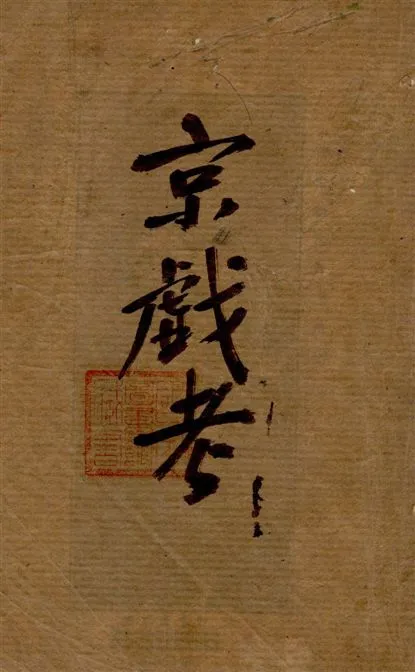 京戲考